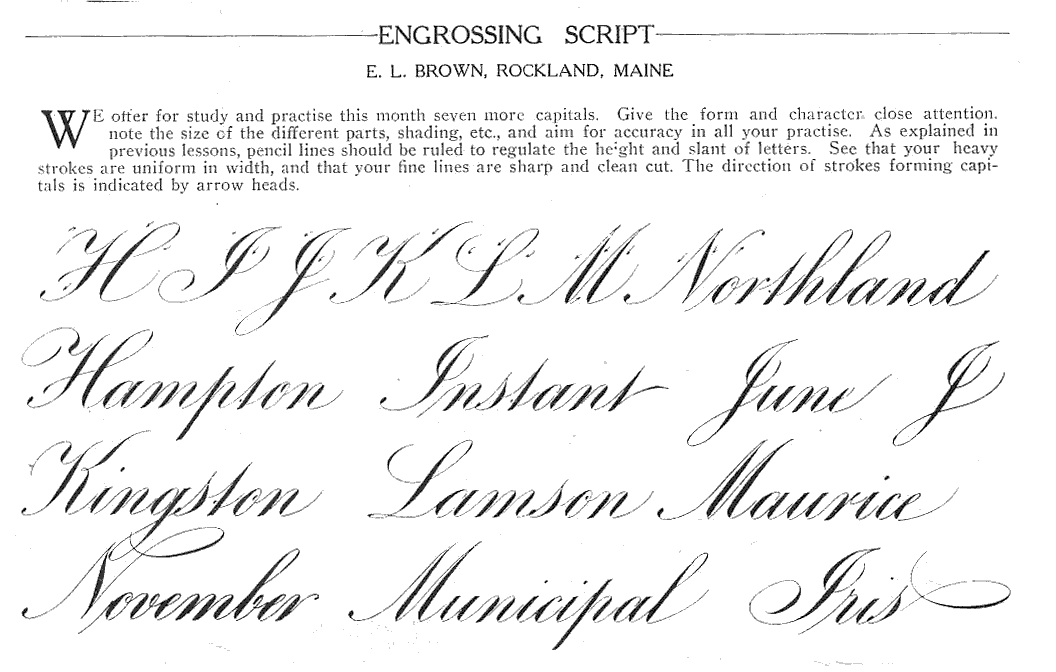 ENGROSSING SCRIPT
E. L. BROWN, ROCKLAND, MAINE
WE offer for study and practise this month seven more capitals. Give the form and character close attention.
note the size of the different parts, shading, etc., and aim for accuracy in all your practise. As explained in
previous lessons, pencil lines should be ruled to regulate the height and slant of letters. See that your heavy
strokes are uniform in width, and that your fine lines are sharp and clean cut. The direction of strokes forming capi-
tals is indicated by arrow heads.
H I J K L M Northland
Hampton Instant June J
Kingston Lamson Maurice
November Municipal Iris